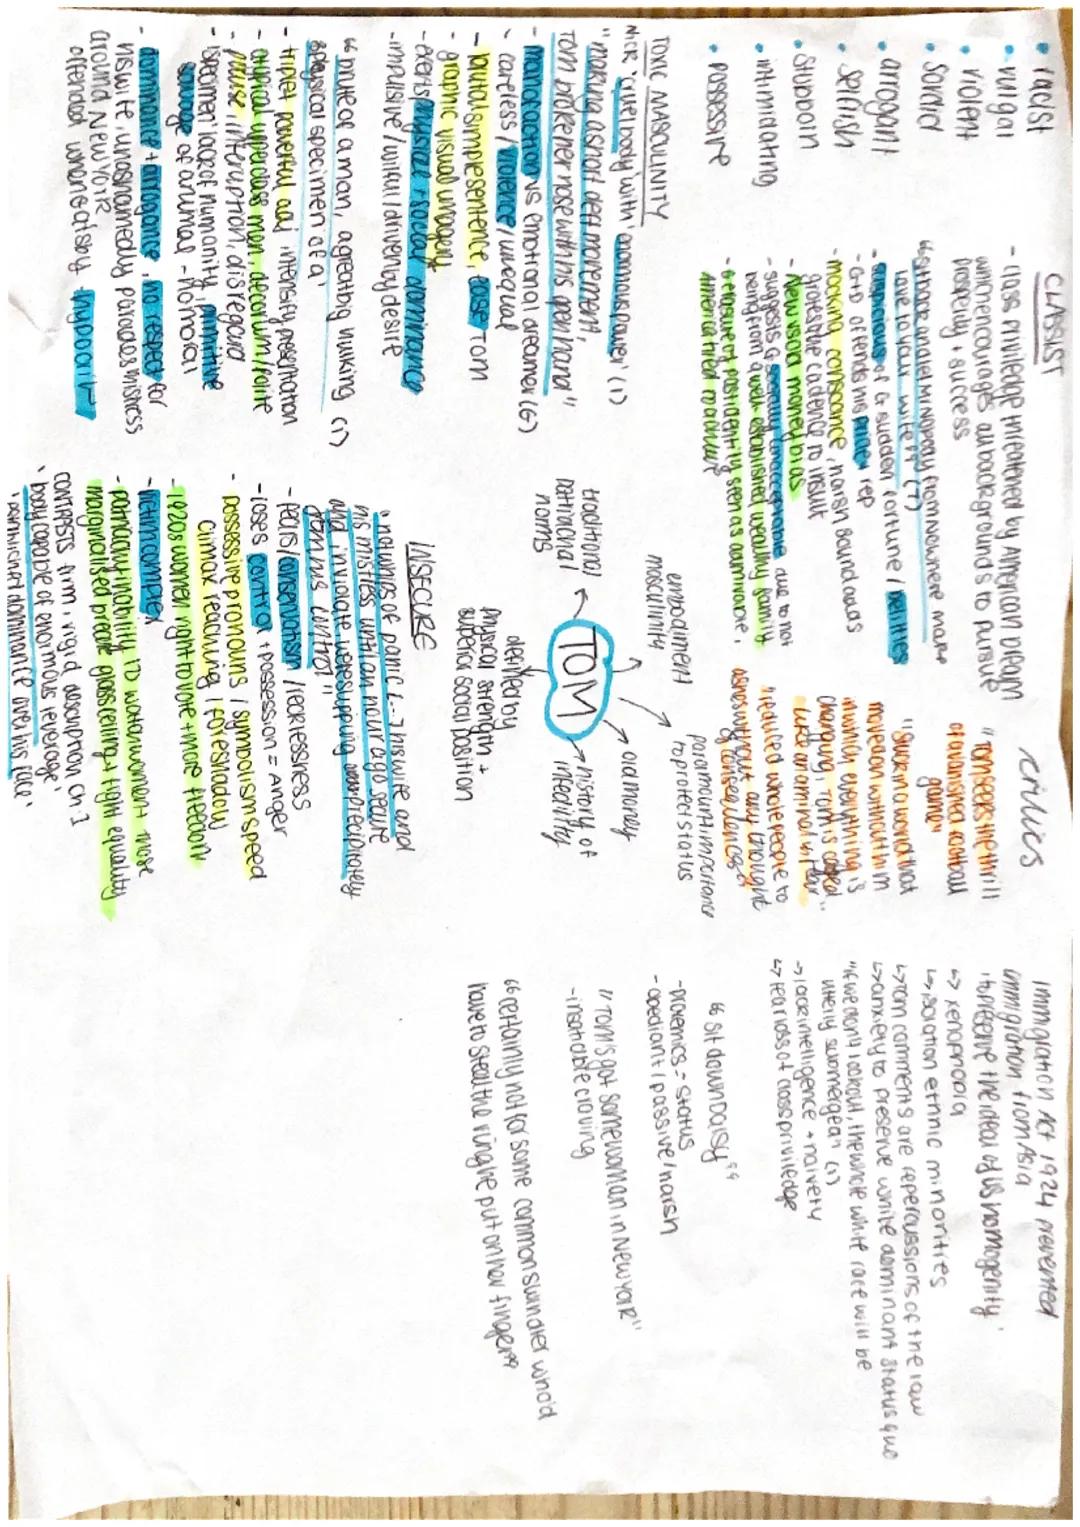 • racist
• vulgar
• violent
• sordid
• arrogant
• selfish
• stubborn
• intimidating
• possessive
TOXIC MASCULINITY
Nick 'cruel body' with enormous power' (1)
"making a short deft movement,
Tom broke her nose with his open hand"
- man of action vs emotional dreamer (G)
- careless / violence / unequal
- brutal simple sentence, ease Tom
- graphic visual imagery
- exerts physical + social dominance
- impulsive / willful / driven by desire
"brute of a man, a great big hulking (1)
physical specimen of a"
- triplet powerful adj intensify presentation
- atypical upperclass man, decorum/polite
- pause, interruption, disregard
- 'specimen' lack of humanity, primitive
savage of animal - No moral
- dominance + arrogance, no respect for
his wife, unashamedly parades mistress
around New York
offended when Gatsby hypocrite
CLASSIST
- class priviledge threatened by American Dream
which encourages all backgrounds to pursue
prosperity + success
"sit back and let Mr Nobody from nowhere make
love to your wife" (7)
- suspicious of G sudden fortune / belittles
- G+D offends his pride + rep
- mocking, consonance, harsh sound adds
grotesque cadence to insult
- New vs old money bias
- suggests G socially unacceptable due to not
being from a well-established wealthy family
- erasure of past identity seen as admirable,
America tried to achieve
embodiment
masculinity
traditional
patriarchal
norms
TOM
paramount importance
to protect status
old money
history of
infedility
defined by
physical strength +
superior social position
INSECURE
"hot whips of panic [...] his wife and
his mistress until an hour ago secure
and inviolate, were slipping precipitately
from his control"
- fears / conservatism / recklessness
- loses control + possession = Anger
- possessive pronouns / symbolism speed
climax reaching / foreshadow
- 1920s women right to vote + more freedom
- victim complex
- patriarchy + nobility to watch women + those
marginalised preach glass ceiling + fight equality
CONTRASTS firm, rigid description ch.1
'body capable of enormous leverage'
dominance over his face'
critics
"Tom seeks the thrill
of a vanished football
game"
"Stuck in a world that
moved on without him
in which everything is
changing, Tom is asked"
"reduced whole people to
ashes without any thought
of consequences"
Immigration Act 1924 prevented
immigration from Asia
'to preserve the ideal of US homogenity'
↳ xenophobia
↳ isolation ethnic minorities
↳ Tom comments are repercussions of the law
↳ anxiety to preserve white dominant status quo
"if we don't look out, the whole white race will be
utterly submerged" (1)
→ lack intelligence + naivety
↳ fear loss of class priviledge
"sit down Daisy"
- proxemics = status
- obedient / passive / harsh
"Tom's got some woman in New York"
- insatiable
"certainly not for some common swindler who'd
have to steal the ring he put on her finger"